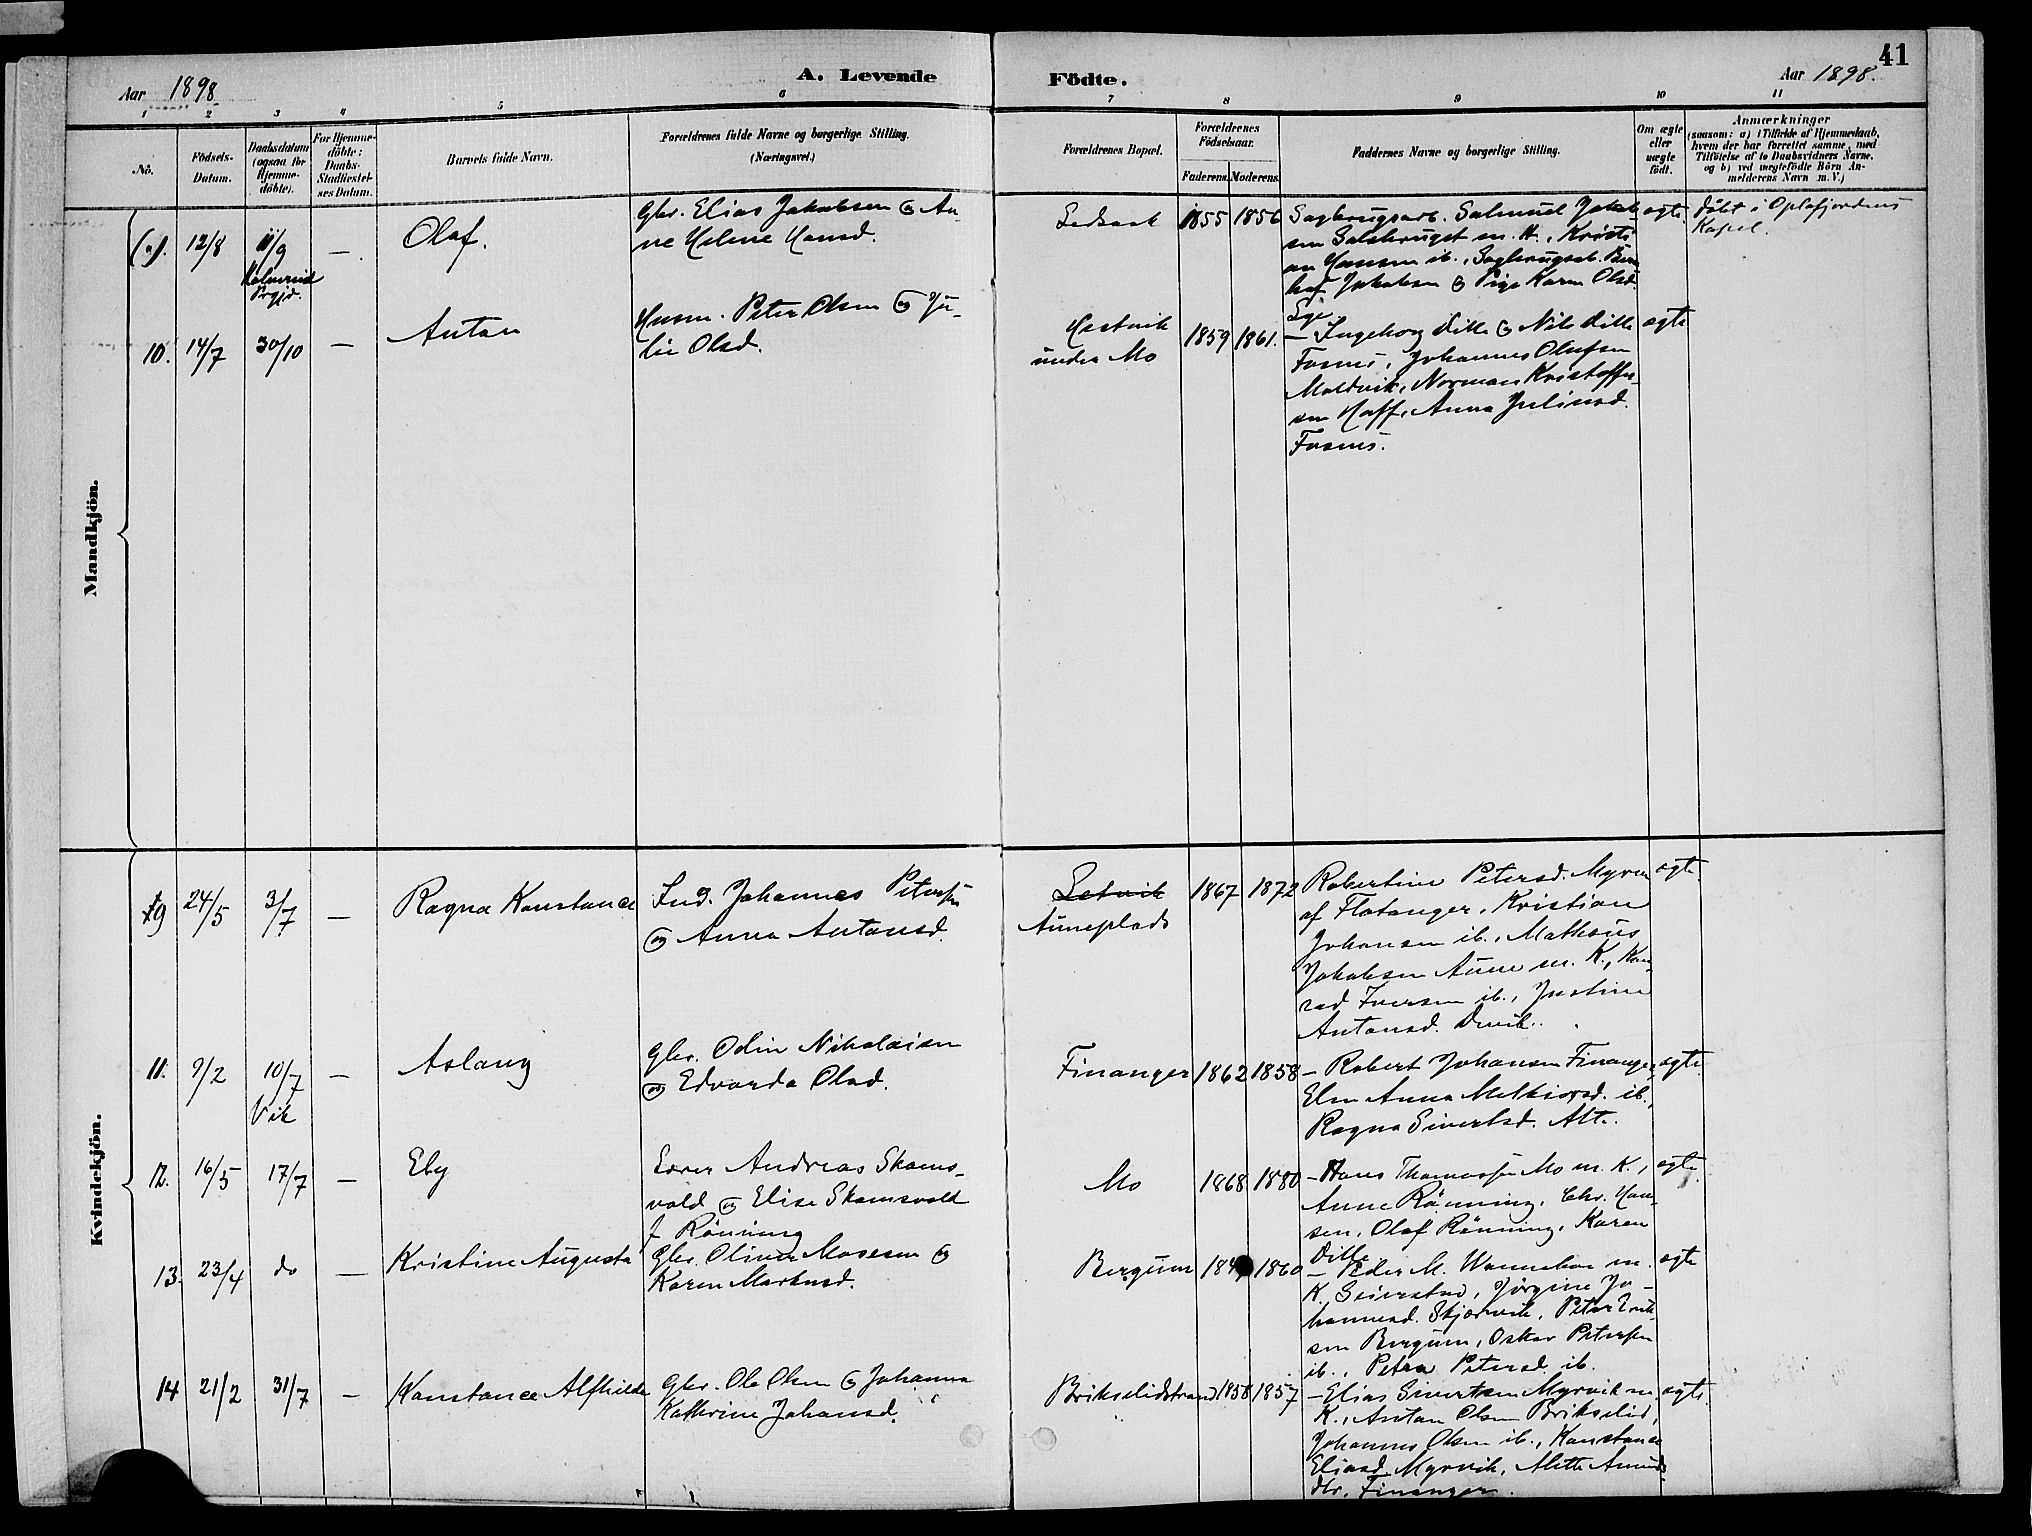 41
Aar 1898
A. Levende
Födte.
Aar 1898.
1 2 3 4 5 6 7 8 9 10 11
No.
Födsels-
Datum.
Daabsdatum
(ogsaa for
Hjemme-
döbte).
For Hjemme-
döbte:
Daabs-
Stadfæstel-
ses Datum.
Barnets fulde Navn.
Forældrenes fulde Navne og borgerlige Stilling.
(Næringsvei.)
Forældrenes Bopæl.
Forældrenes
Födselsaar.
Faderens. Moderens.
Faddernes Navne og borgerlige Stilling.
Om ægte
eller
uægte
født.
Anmærkninger
(saasom: a) i Tilfælde af Hjemmedaab,
hvem der har forrettet samme, med
Tilföielse af to Daabsvidners Navne,
og b) ved uægtefödte Börn An-
melderens Navn m. V.)
Mandkjön.
12/8
11/9
Kolvereid
Prgjd.
—
Olaf.
Gbr. Elias Jakobsen og An-
ne Helene Hansd.
1855 1856
Sagbrugsarb. Salmuel Jakob-
sen Salsbruget m. H., Kristi-
an Hansen ib., Sagbrugsarb. Bern
haf Jakobsen og Pige Karen Olsd.
ægte
døbt i Oplofjordens
Kapel.
10.
14/7
30/10
—
Anton
Husm. Peter Olsen og Ju-
lie Olsd.
Hestvik
under Mo
1859 1861.
— Ingeborg Ditte og Nils Ditte
Fosnes, Johannes Olufsen
Moldvik, Norman Kristoffer-
sen Hoff, Anna Juliusd.
Fosnes.
ægte
Kvindekjön.
9
24/5
3/7
—
Ragna Konstance
Ind. Johannes Petersen
og Anna Antonsd.
Setvik
Auneplads
1867 1872
Robertine Petersd. Myren
af Flatanger, Kristian
Johansen ib., Mathæus
Jakobsen Aune m. K., Kon-
rad Iversen ib., Justine
Antonsd.
ægte
11.
9/2
10/7
Vik
—
Aslaug
Gbr. Odin Nikolaisen
og Edvarda Olsd.
Finanger
1862 1858
— Robert Johansen Finanger,
Elen Anna Melkiorsd. ib.,
Ragna Sivertsd. Alte.
ægte
12.
16/5
17/7
—
Eby
Lærer Andreas Skoms-
vold og Elise Skomsvold
f. Rönning
Mo
1868 1880
— Hans Thomassen Mo m. K.,
Anne Rönning, Chr. Han-
sen, Olaf Rönning, Karen
Ditte
ægte
13.
23/4
do
—
Kristine Augusta
Gbr. Oliver Mosesen og
Karen Markusd.
Bergum
1860
— Peder M. Wannebo m.
K. Seierstad, Jørgine Jo-
hannesd. Skjærvik, Peter Erik-
sen Bergum, Oskar Petersen
ib., Petra Petersd. ib.
ægte
14
21/2
31/7
—
Konstance Alfhilde
Gbr. Ole Olsen og Johanna
Kathrine Johansd.
Brikselidstrand
1858 1857
— Elias Sivertsen Myrvik m.
K., Anton Olsen Brikselid,
Johannes Olsen ib., Konstance
Eliasd. Myrvik, Alette Amunds-
dtr. Finanger.
ægte